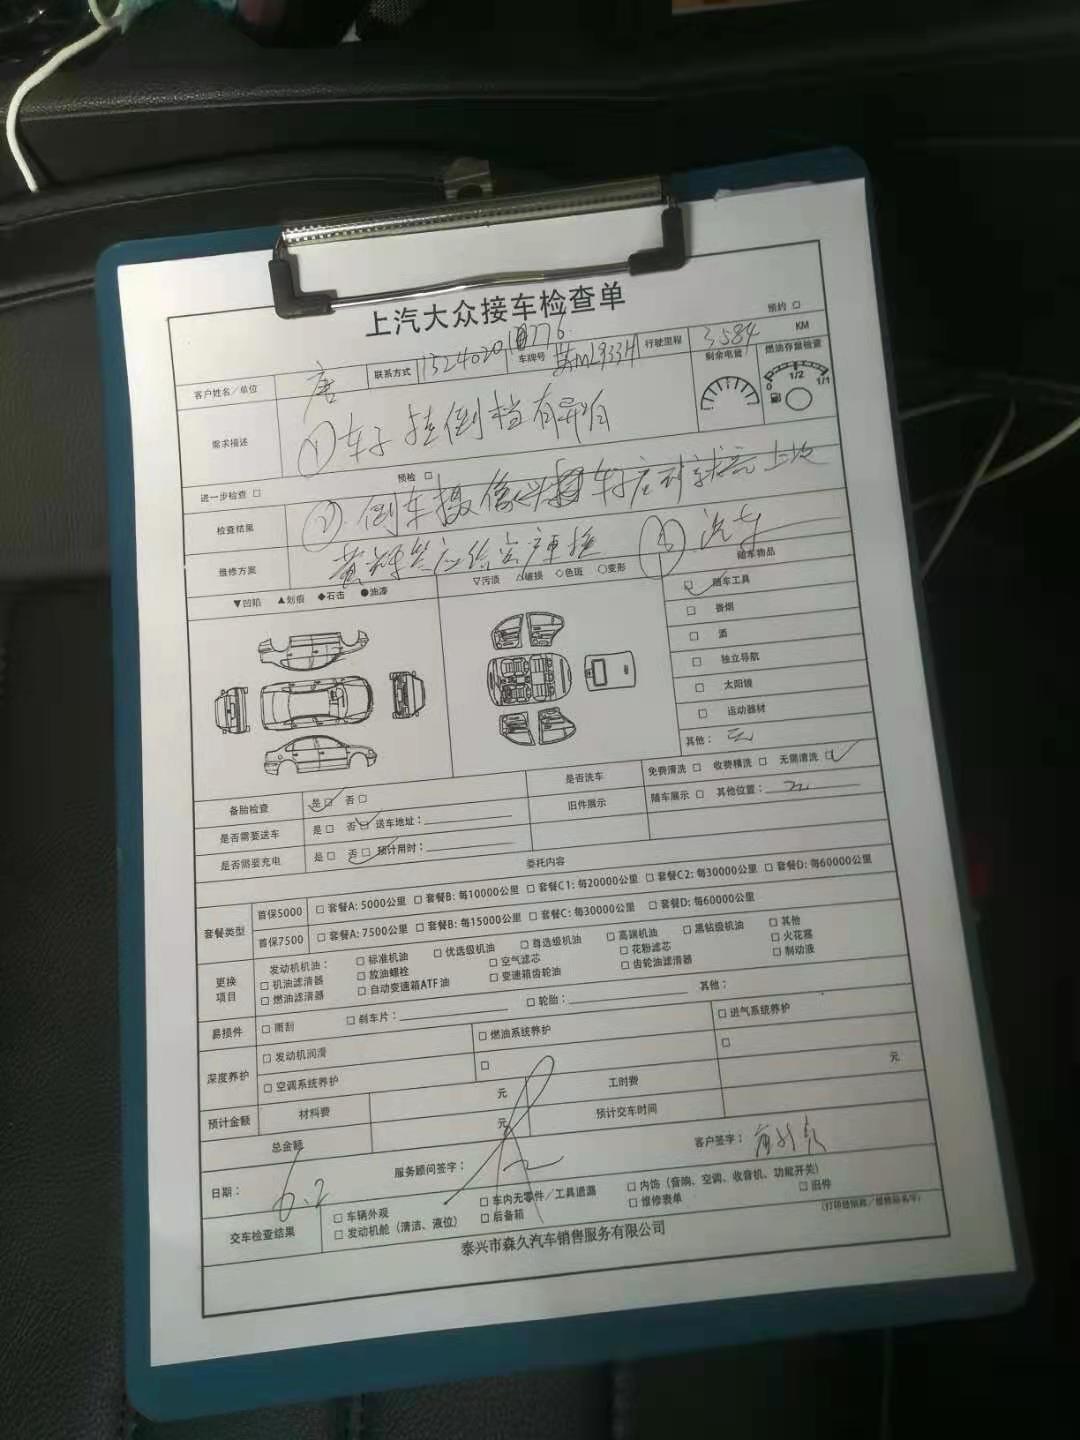 上汽大众接车检查单
预约 □
客户姓名/单位 唐 联系方式 车牌号 行驶里程 3584 KM
需求描述 ①车子挂倒档有异响
剩余电量 燃油存量检查
0 1/2 1/1
进一步检查 □ 预检 □
检查结果 ②倒车摄像
维修方案 ③汽车
▼凹陷 ▲划痕 ◆石击 ●油漆 ▽污渍 △破损 ◇色斑 ○变形 随车物品
□ 随车工具
□ 香烟
□ 酒
□ 独立导航
□ 太阳镜
□ 运动器材
其他: 无
备胎检查 是 □ 否 □ 是否洗车 免费清洗 □ 收费精洗 □ 无需清洗 □
是否需要送车 是 □ 否 □ 送车地址: 旧件展示 随车展示 □ 其他位置: 无
是否需要充电 是 □ 否 □ 预计用时:
委托内容
套餐类型 首保5000 □ 套餐A: 5000公里 □ 套餐B: 每10000公里 □ 套餐C1: 每20000公里 □ 套餐C2: 每30000公里 □ 套餐D: 每60000公里
首保7500 □ 套餐A: 7500公里 □ 套餐B: 每15000公里 □ 套餐C: 每30000公里 □ 套餐D: 每60000公里
更换项目 发动机机油: □ 标准机油 □ 优选级机油 □ 尊选级机油 □ 高端机油 □ 黑钻级机油 □ 其他
□ 机油滤清器 □ 放油螺栓 □ 空气滤芯 □ 花粉滤芯 □ 火花塞
□ 燃油滤清器 □ 自动变速箱ATF油 □ 变速箱齿轮油 □ 齿轮油滤清器 □ 制动液
易损件 □ 雨刮 □ 刹车片: □ 轮胎: 其他:
深度养护 □ 发动机润滑 □ 燃油系统养护 □ 进气系统养护
□ 空调系统养护 □ □
预计金额 材料费 元 工时费 元
总金额 元 预计交车时间
日期: 6.2 服务顾问签字: 客户签字:
交车检查结果 □ 车辆外观 □ 车内无零件/工具遗漏 □ 内饰(音响、空调、收音机、功能开关)
□ 发动机舱(清洁、液位) □ 后备箱 □ 维修表单 □ 旧件
泰兴市森久汽车销售服务有限公司